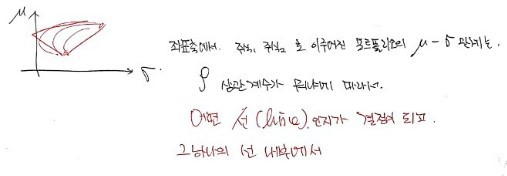 μ
σ
좌표축에서. 주식₁, 주식₂ 로 이루어진 포트폴리오의 μ - σ 관계는.
ρ 상관계수가 뭐냐에 따라서.
어떤 선(line)인지가 결정이 되고.
그 하나의 선 내부에서